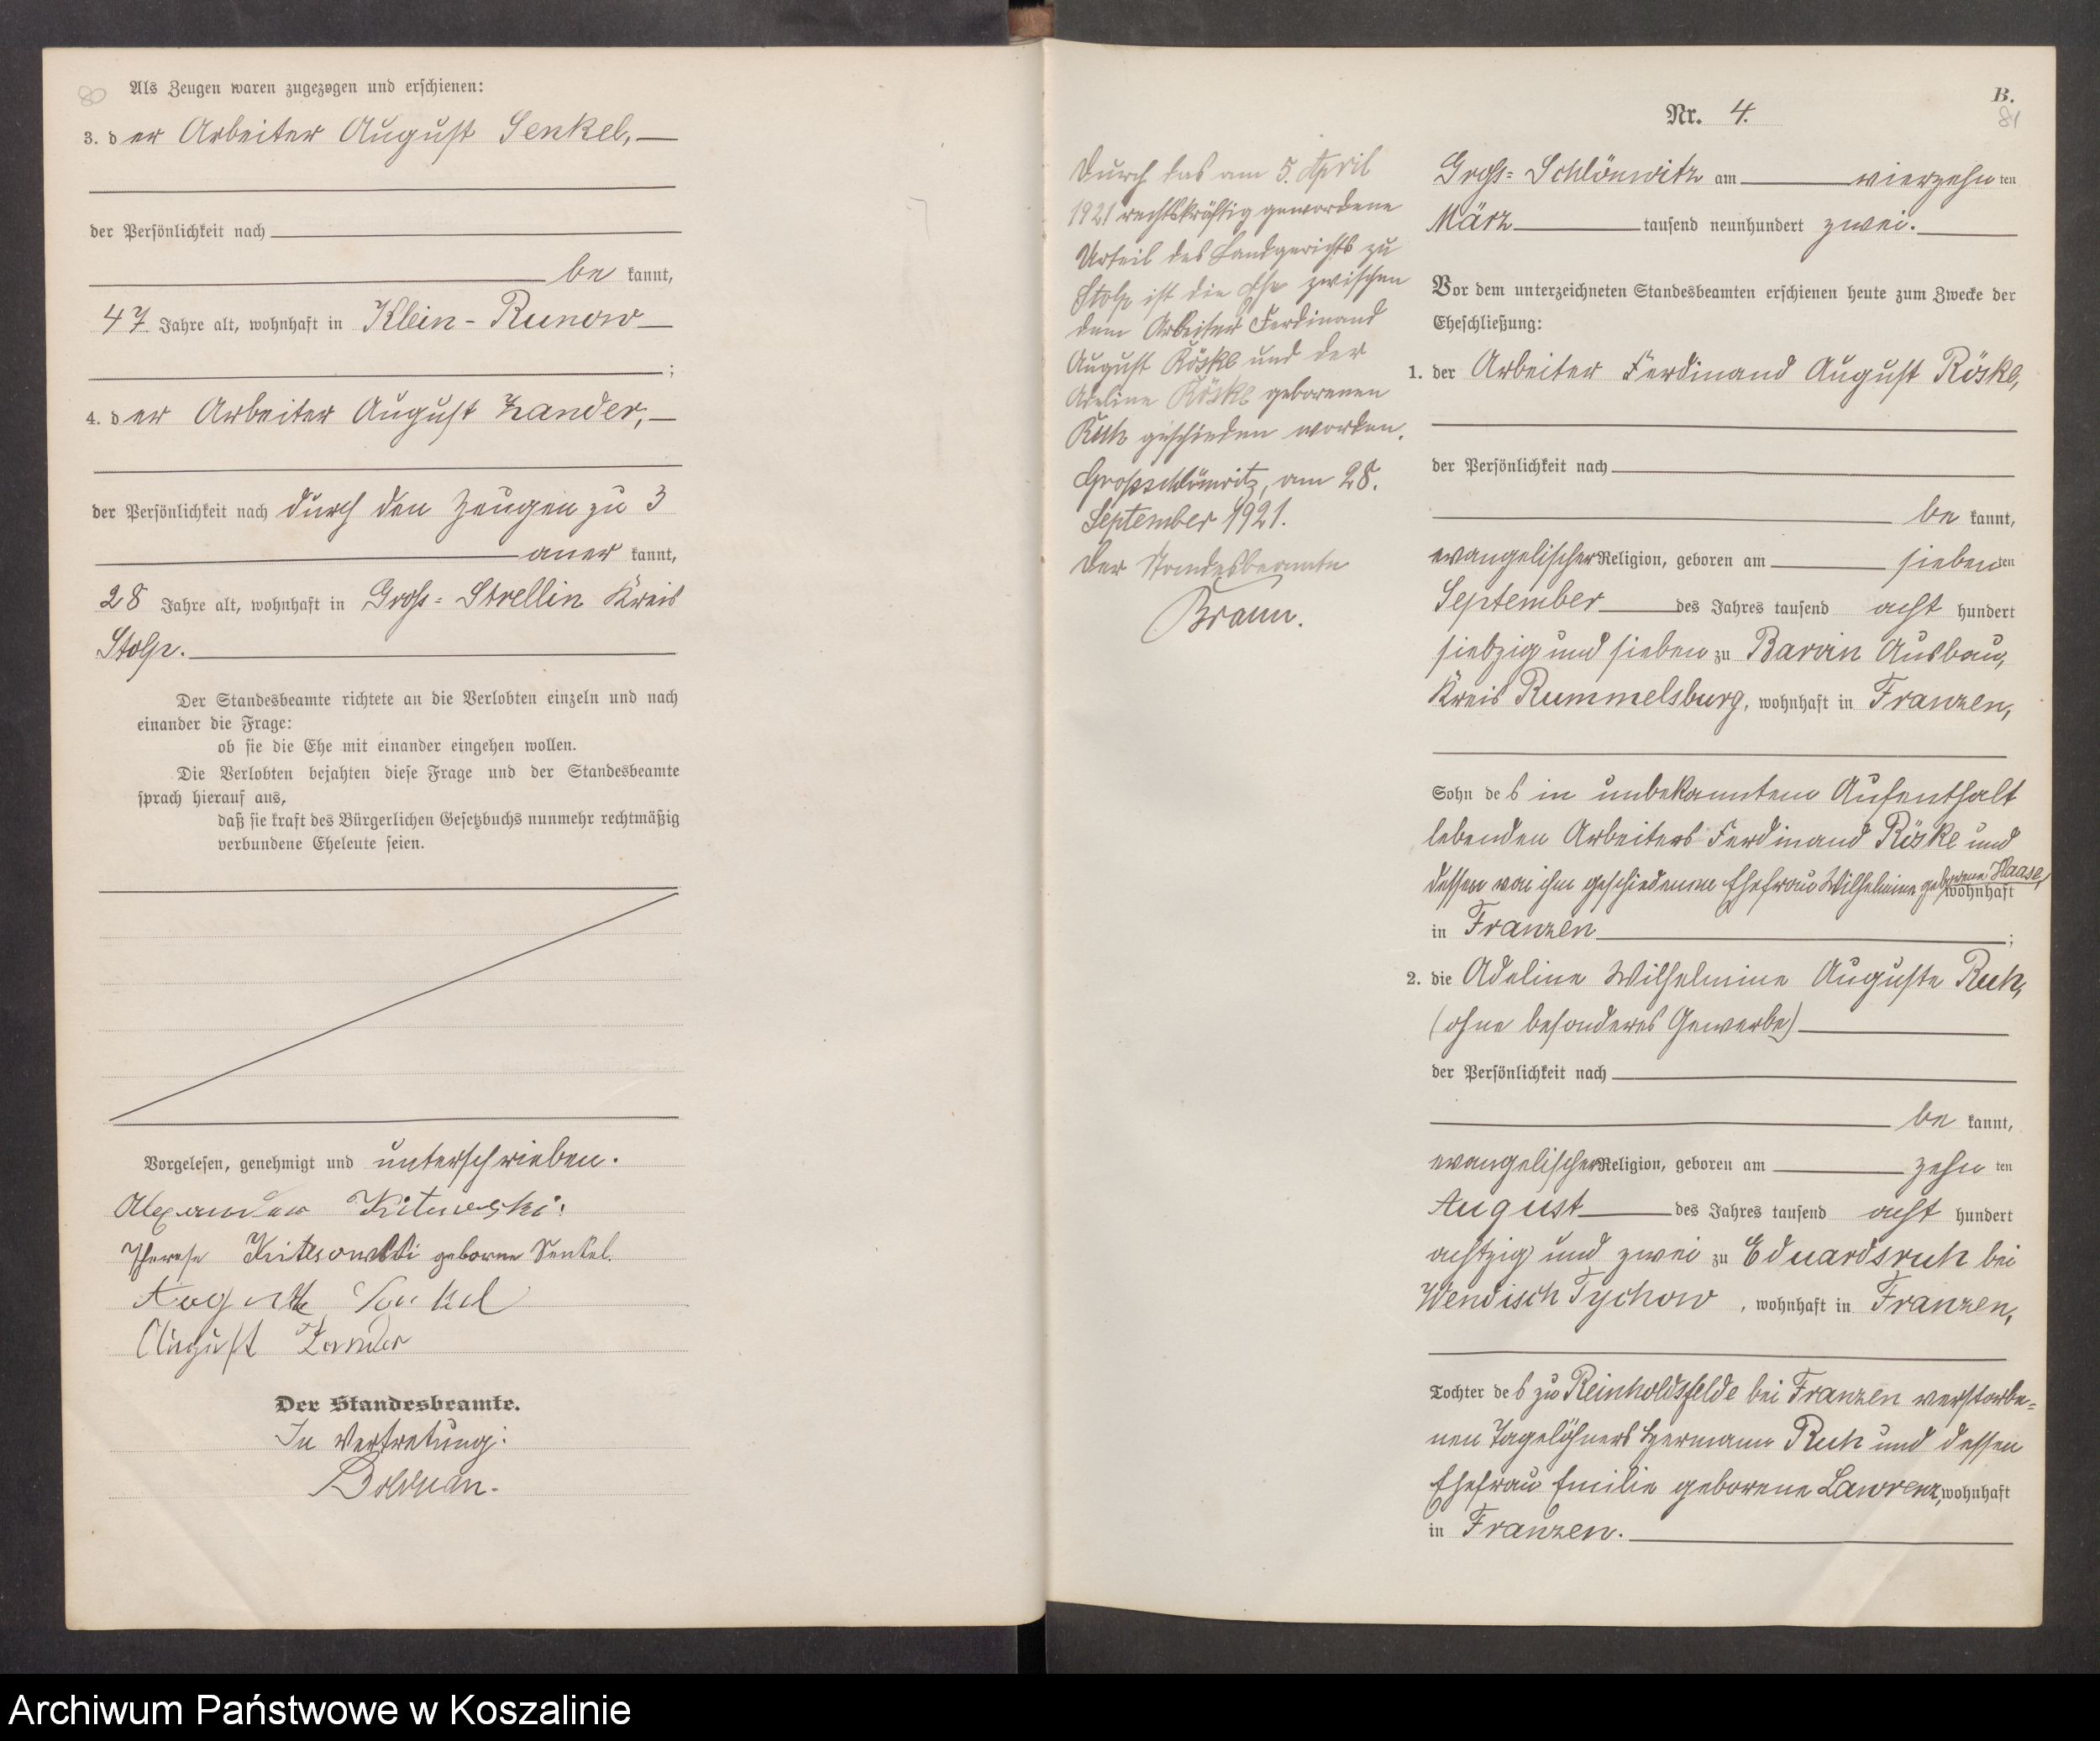 80
Als Zeugen waren zugezogen und erschienen:
3. der Arbeiter August Senkel,
der Persönlichkeit nach
be kannt,
47 Jahre alt, wohnhaft in Klein-Runow
;
4. der Arbeiter August Zander,
der Persönlichkeit nach durch den Zeugen zu 3
aner kannt,
28 Jahre alt, wohnhaft in Gross-Strellin Kreis
Stolp.
Der Standesbeamte richtete an die Verlobten einzeln und nach
einander die Frage:
ob sie die Ehe mit einander eingehen wollen.
Die Verlobten bejahten diese Frage und der Standesbeamte
sprach hierauf aus,
daß sie kraft des Bürgerlichen Gesetzbuchs nunmehr rechtmäßig
verbundene Eheleute seien.
Vorgelesen, genehmigt und unterschrieben.
Alexander
Therese geborne Senkel.
August Senkel
August Zander
Der Standesbeamte.
In Vertretung:
Durch das am 5. April
1921 rechtskräftig gewordene
Urteil des Landgerichts zu
Stolp ist die Ehe zwischen
dem Arbeiter Ferdinand
August Röske und der
Adeline Röske geborenen
Ruh geschieden worden.
Grossschlönwitz, am 28.
September 1921.
Der Standesbeamte
Braun.
B.
81
Nr. 4.
Gross-Schlönwitz am vierzehnten
März tausend neunhundert zwei.
Vor dem unterzeichneten Standesbeamten erschienen heute zum Zwecke der
Eheschließung:
1. der Arbeiter Ferdinand August Röske,
der Persönlichkeit nach
be kannt,
evangelischer Religion, geboren am siebenten
September des Jahres tausend acht hundert
siebzig und sieben zu Barvin Ausbau,
Kreis Rummelsburg, wohnhaft in Franzen,
Sohn des in unbekanntem Aufenthalt
lebenden Arbeiters Ferdinand Röske und
dessen von ihm geschiedenen Ehefrau Wilhelmine geborene Haase, wohnhaft
in Franzen ;
2. die Adeline Wilhelmine Auguste Ruh,
(ohne besonderes Gewerbe)
der Persönlichkeit nach
be kannt,
evangelischer Religion, geboren am zehnten
August des Jahres tausend acht hundert
achtzig und zwei zu Eduardsruh bei
Wendisch Tychow, wohnhaft in Franzen,
Tochter des zu Reinholdsfelde bei Franzen verstorbe-
nen Tagelöhners Hermann Ruh und dessen
Ehefrau Emilie geborene Lawrenz, wohnhaft
in Franzen.
Archiwum Państwowe w Koszalinie